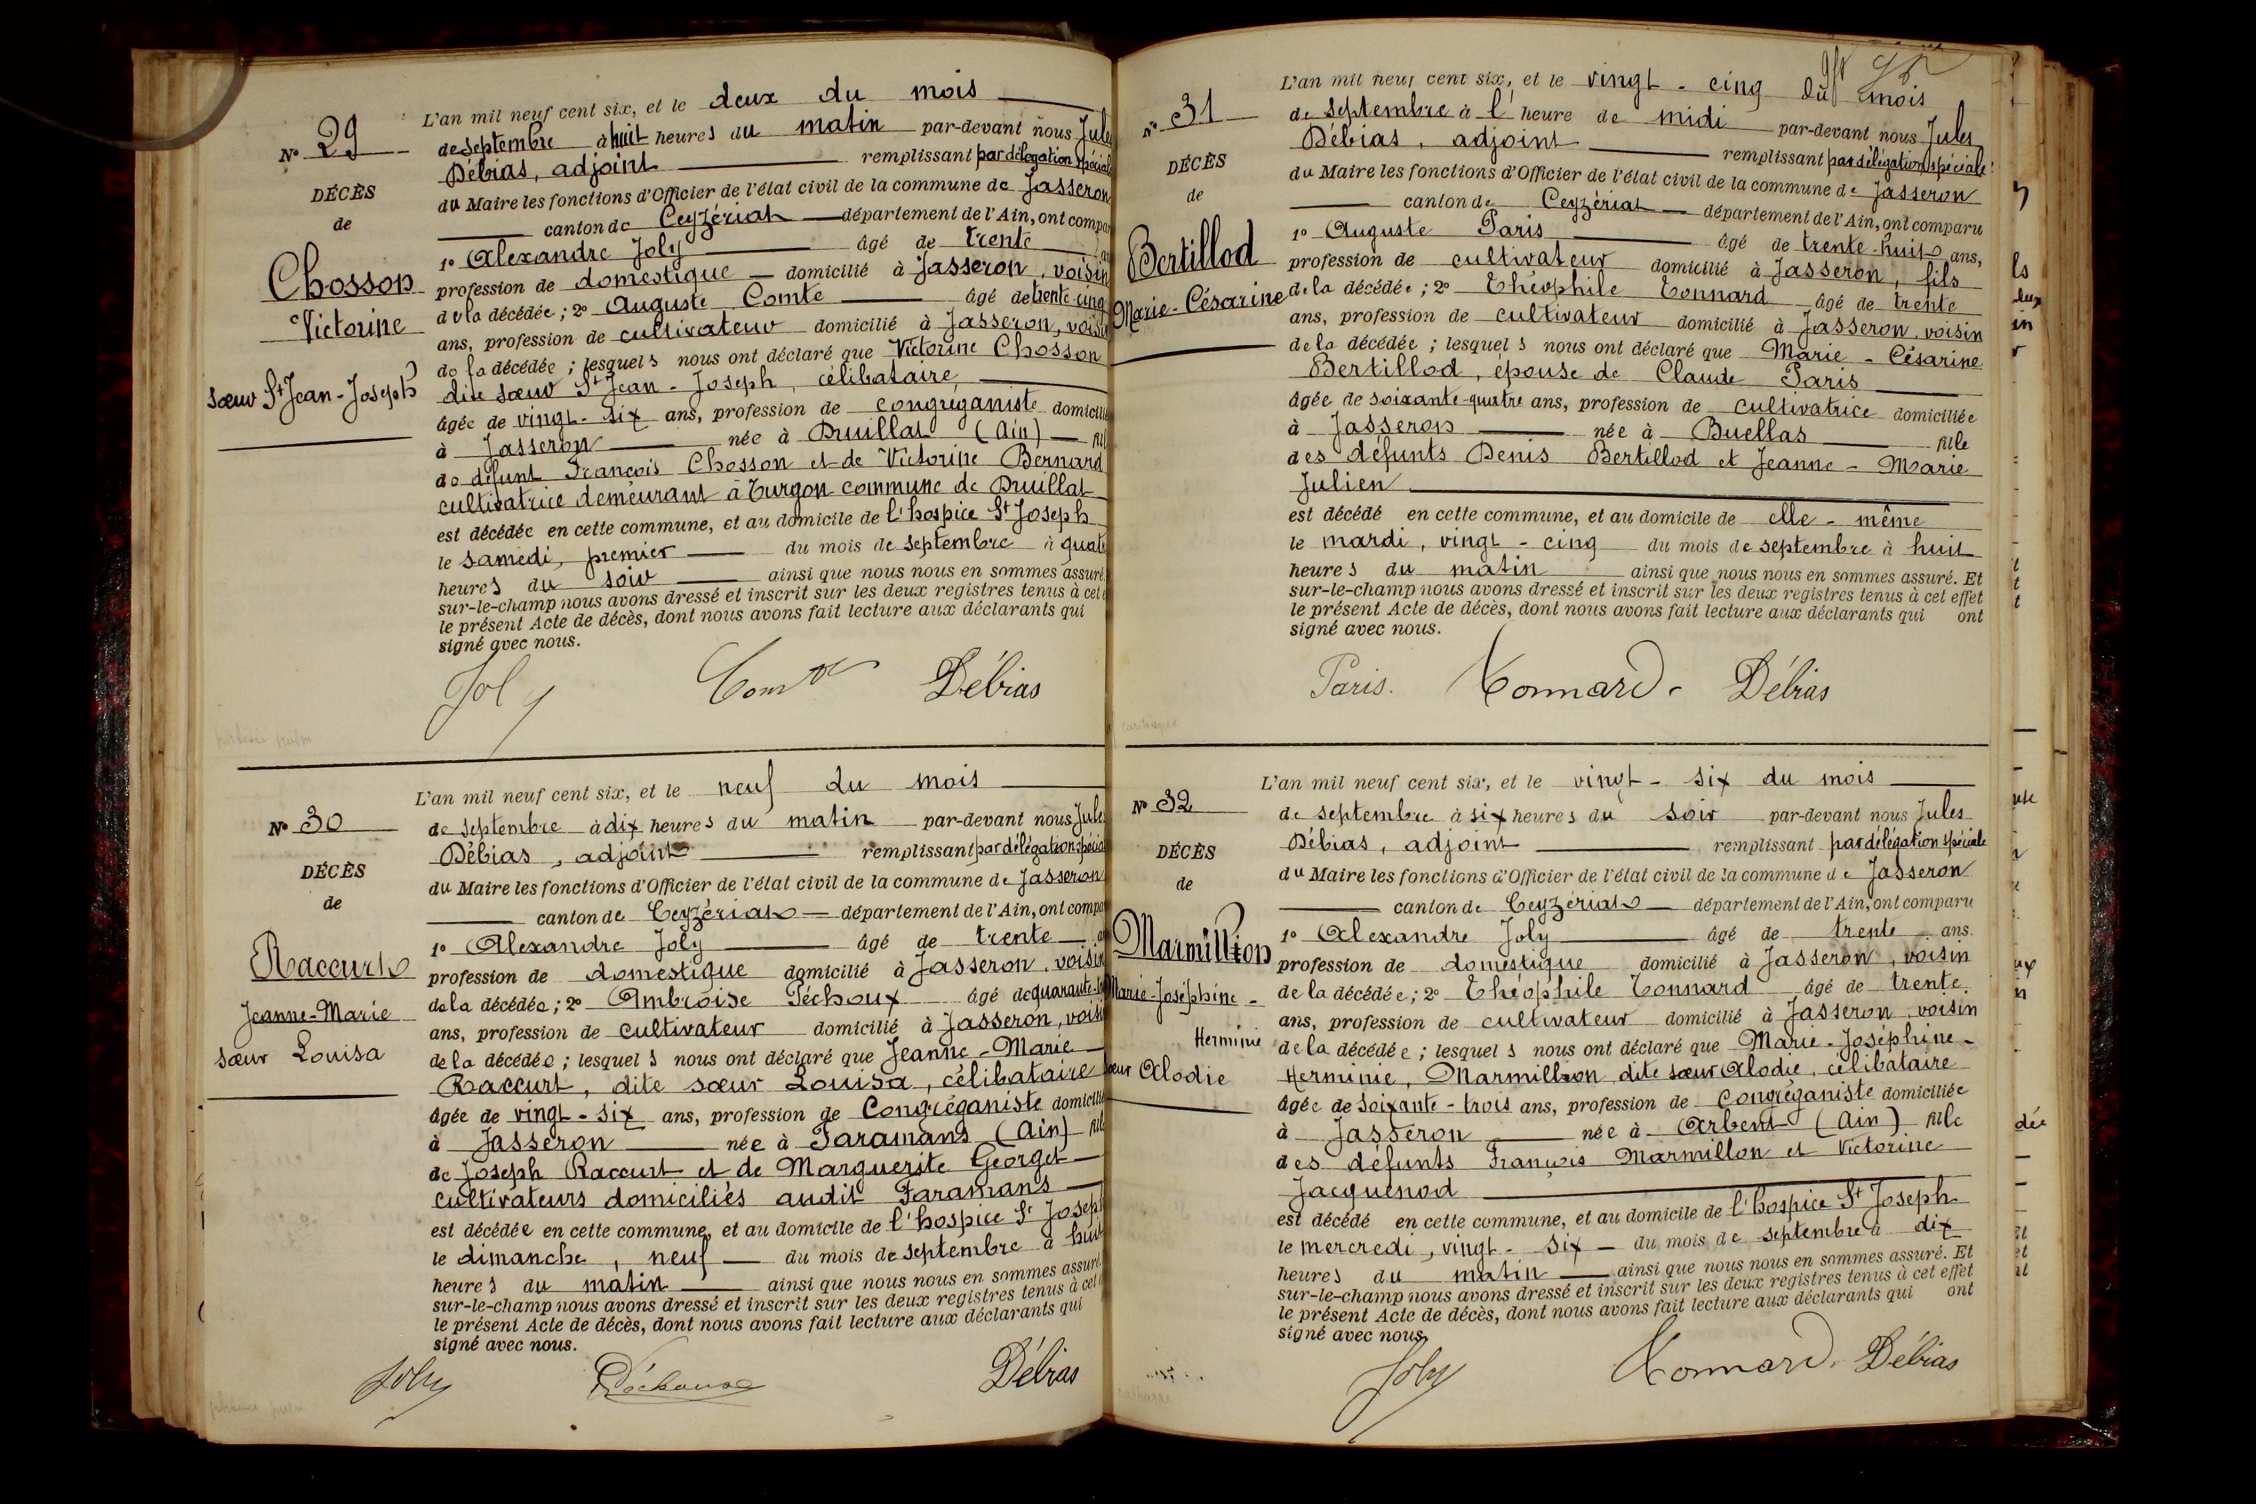 N° 29
DÉCÈS
de
Chosson
Victorine
sœur St Jean-Joseph
L'an mil neuf cent six, et le deux du mois
de septembre à huit heures du matin par-devant nous Jules
Débias, adjoint remplissant par délégation spéciale
du Maire les fonctions d'Officier de l'état civil de la commune de Jasseron
canton de Ceyzériat département de l'Ain, ont compa
1° Alexandre Joly âgé de trente
profession de domestique domicilié à Jasseron, voisin
de la décédée; 2° Auguste Comte âgé de trente-cinq
ans, profession de cultivateur domicilié à Jasseron, voisin
de la décédée; lesquels nous ont déclaré que Victorine Chosson
dite sœur St Jean-Joseph, célibataire,
âgée de vingt-six ans, profession de congréganiste domiciliée
à Jasseron née à Druillat (Ain) fill
de défunt François Chosson et de Victorine Bernard
cultivatrice demeurant à Turgon commune de Druillat
est décédée en cette commune, et au domicile de l'hospice St Joseph
le samedi, premier du mois de septembre à quat
heures du soir ainsi que nous nous en sommes assuré.
sur-le-champ nous avons dressé et inscrit sur les deux registres tenus à cet e
le présent Acte de décès, dont nous avons fait lecture aux déclarants qui
signé avec nous.
Joly Comte Débias
N° 30
DÉCÈS
de
Raccurt
Jeanne-Marie
sœur Louisa
L'an mil neuf cent six, et le neuf du mois
de septembre à dix heures du matin par-devant nous Jules
Débias, adjoint remplissant par délégation spécia
du Maire les fonctions d'Officier de l'état civil de la commune de Jasseron
canton de Ceyzériat département de l'Ain, ont compa
1° Alexandre Joly âgé de trente
profession de domestique domicilié à Jasseron, voisin
de la décédée; 2° Ambroise Péchoux âgé de quarante-
ans, profession de cultivateur domicilié à Jasseron, voisi
de la décédée; lesquels nous ont déclaré que Jeanne-Marie
Raccurt, dite sœur Louisa, célibataire
âgée de vingt-six ans, profession de Congréganiste domicilié
à Jasseron née à Faramans (Ain) fill
de Joseph Raccurt et de Marguerite Georget
cultivateurs domiciliés audit Faramans
est décédée en cette commune, et au domicile de l'hospice St Joseph
le dimanche, neuf du mois de septembre à huit
heures du matin ainsi que nous nous en sommes assuré.
sur-le-champ nous avons dressé et inscrit sur les deux registres tenus à cet e
le présent Acte de décès, dont nous avons fait lecture aux déclarants qui
signé avec nous.
Joly Péchoux Débias
N° 31
DÉCÈS
de
Bertillod
Marie-Césarine
L'an mil neuf cent six, et le vingt-cinq du mois
de septembre à l'heure de midi par-devant nous Jules
Débias, adjoint remplissant par délégation spéciale
du Maire les fonctions d'Officier de l'état civil de la commune de Jasseron
canton de Ceyzériat département de l'Ain, ont comparu
1° Auguste Paris âgé de trente-huit ans,
profession de cultivateur domicilié à Jasseron, fils
de la décédée; 2° Théophile Tonnard âgé de trente
ans, profession de cultivateur domicilié à Jasseron, voisin
de la décédée; lesquels nous ont déclaré que Marie-Césarine
Bertillod, épouse de Claude Paris
âgée de soixante-quatre ans, profession de cultivatrice domiciliée
à Jasseron née à Buellas fille
des défunts Denis Bertillod et Jeanne-Marie
Julien
est décédé en cette commune, et au domicile de elle-même
le mardi, vingt-cinq du mois de septembre à huit
heures du matin ainsi que nous nous en sommes assuré. Et
sur-le-champ nous avons dressé et inscrit sur les deux registres tenus à cet effet
le présent Acte de décès, dont nous avons fait lecture aux déclarants qui ont
signé avec nous.
Paris. Tonnard. Débias
N° 32
DÉCÈS
de
Marmillion
Marie-Joséphine-
Herminie
sœur Alodie
L'an mil neuf cent six, et le vingt-six du mois
de septembre à six heures du soir par-devant nous Jules
Débias, adjoint remplissant par délégation spéciale
du Maire les fonctions d'Officier de l'état civil de la commune de Jasseron
canton de Ceyzériat département de l'Ain, ont comparu
1° Alexandre Joly âgé de trente ans.
profession de domestique domicilié à Jasseron, voisin
de la décédée; 2° Théophile Tonnard âgé de trente
ans, profession de cultivateur domicilié à Jasseron, voisin
de la décédée; lesquels nous ont déclaré que Marie-Joséphine-
Herminie, Marmillion dite sœur Alodie, célibataire
âgée de soixante-trois ans, profession de congréganiste domiciliée
à Jasseron née à Arbent (Ain) fille
des défunts François Marmillon et Victorine
Jacquenod
est décédé en cette commune, et au domicile de l'hospice St Joseph
le mercredi, vingt-six du mois de septembre à dix
heures du matin ainsi que nous nous en sommes assuré. Et
sur-le-champ nous avons dressé et inscrit sur les deux registres tenus à cet effet
le présent Acte de décès, dont nous avons fait lecture aux déclarants qui ont
signé avec nous.
Joly Tonnard. Débias